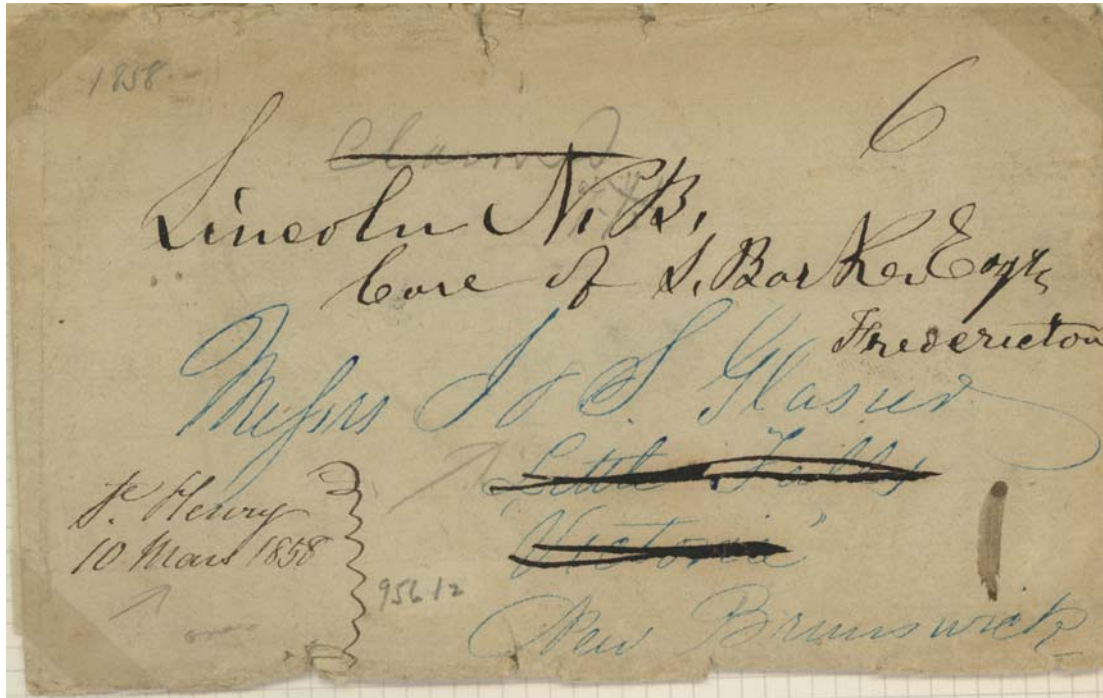 1858
6
Lincoln N.B.
Care of S. Barker Esqr.
Fredericton
Messrs J & S Glasier
Little Falls
Victoria
New Brunswick
St. Henry
10 Mars 1858
95612